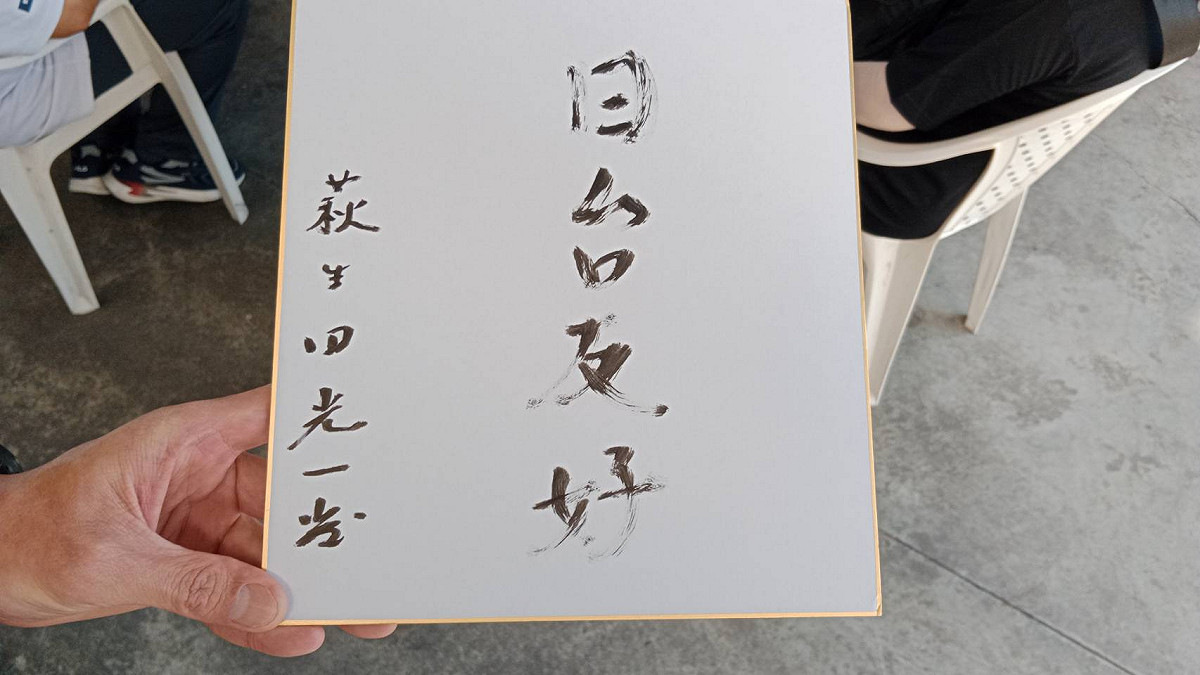 日台友好
萩生田光一